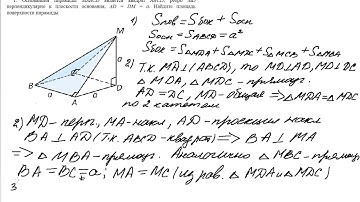 1. Основанием пирамиды MABCD является квадрат ABCD, ребро MD
перпендикулярно к плоскости основания, AD = DM = a. Найдите площадь
поверхности пирамиды.
M
a
D
C
B
a
A
1) Sпов = Sбок + Sосн
Sосн = SABCD = a²
Sбок = S△MDA + S△MDC + S△MCB + S△MBA
2) Т.к. MD⊥(ABCD), то MD⊥AD, MD⊥DC
△MDA, △MDC - прямоуг.
AD = DC, MD - общая => △MDA = △MDC
по 2 катетам
2) MD - перп., MA - накл, AD - проекция накл
BA ⊥ AD (т.к. ABCD - квадрат) => BA ⊥ MA
=> △MBA - прямоуг. Аналогично △MBC - прямоуг
BA = BC = a; MA = MC (из рав. △MDA и △MDC)
3